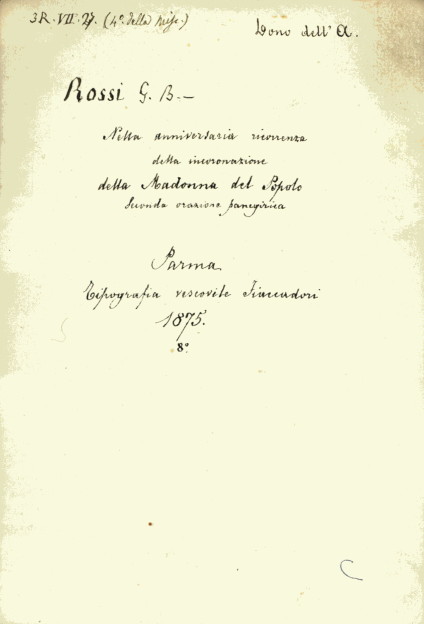 3R. VII. 27. (4º della Misc.)
Dono dell' A.
Rossi G. B. —
Nella anniversaria ricorrenza
della incoronazione
della Madonna del Popolo
Seconda orazione panegirica
Parma
Tipografia vescovile Fiaccadori
1875.
8º